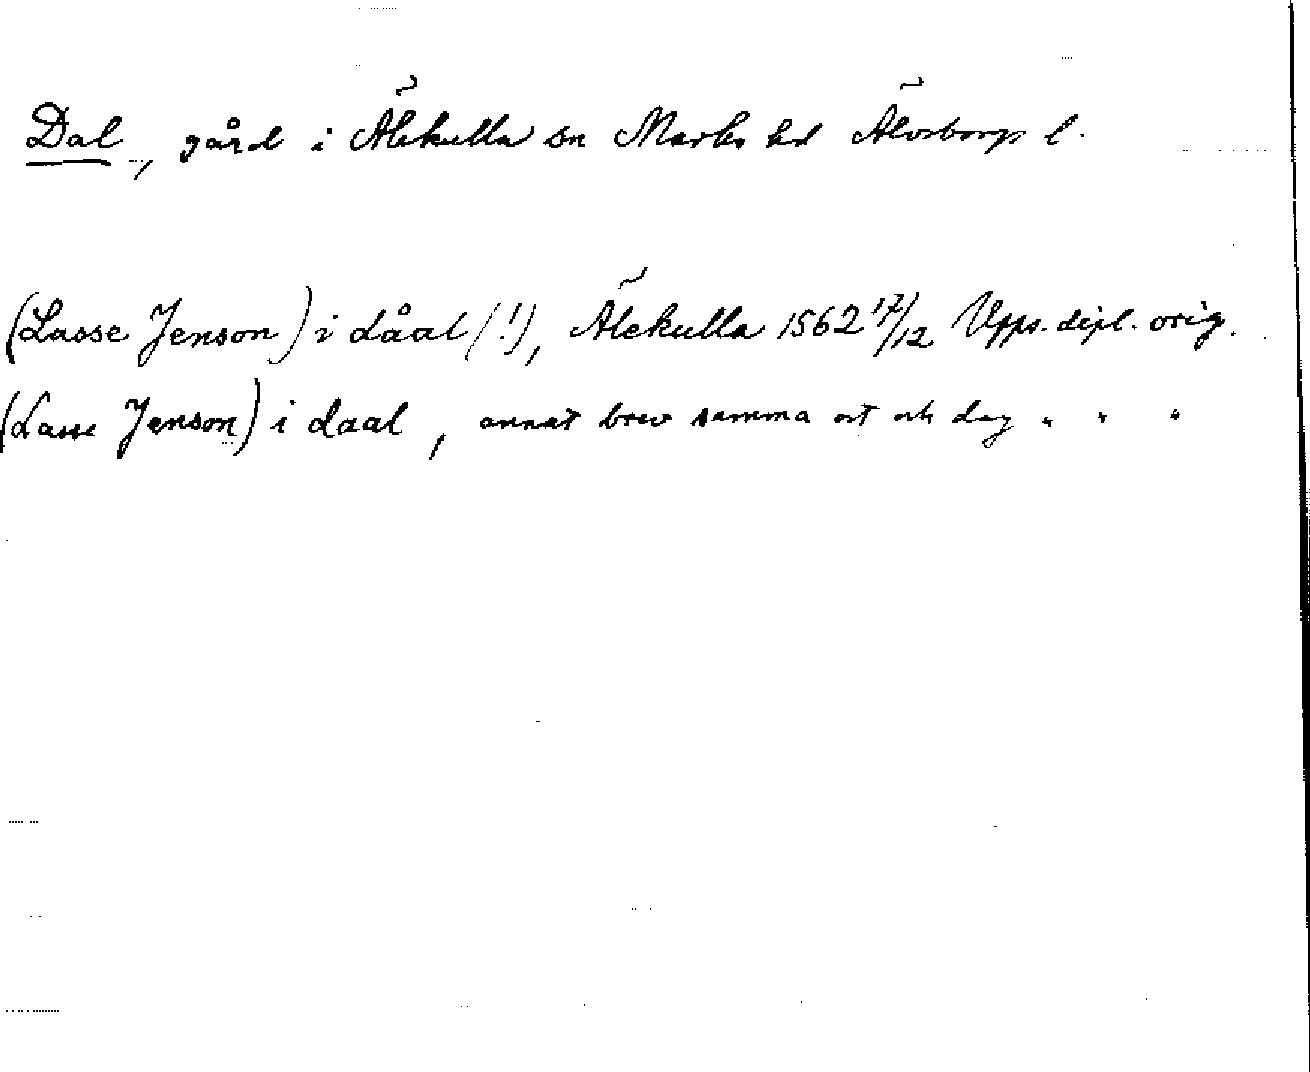 Dal, gård i Älekulla sn Marks hd Älvsborgs l.
(Lasse Jenson) i dåal (!), Älekulla 1562 17/12 Upps. dipl. orig.
(Lasse Jenson) i daal, annat brev samma ort och dag " " "